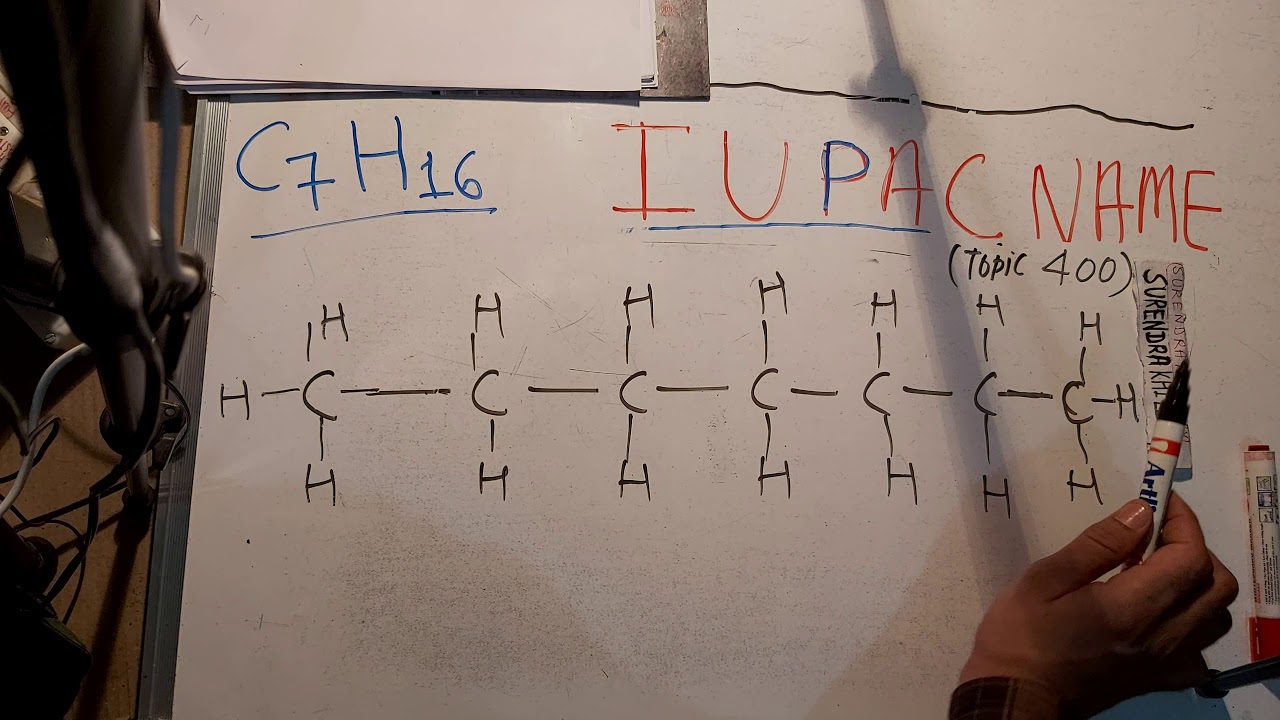 C7H16 IUPAC NAME
(Topic 400)
SURENDRA
SURENDRA
H H H H H H H
H-C-C-C-C-C-C-C-H
H H H H H H H
Artl